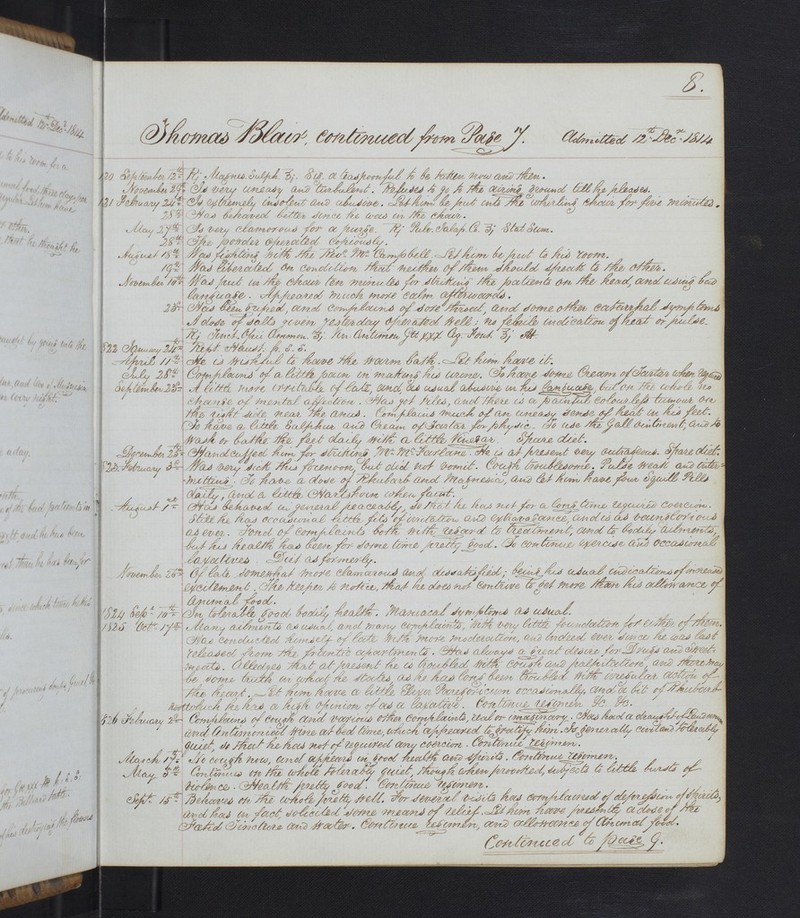 8.
Thomas Blair, continued from Page 7. Admitted 12th Decr. 1814
September 12th Rx Magnes. Sulph. ℥j. Sig. a teaspoonful to be taken now and then.
November 29th Is very uneasy and turbulent. Refuses to go to the airing ground till he pleases.
February 24th Is extremely insolent and abusive. Let him be put into the whirling chair for five minutes.
28th Has behaved better since he was in the chair.
May 27th Is very clamorous for a purge. Rx Pulv. Jalap C. ʒj Stat Sum.
28th The powder operated copiously.
August 18th Was fighting with the Revd. Mr. Campbell. Let him be put to his room.
19th Was liberated, on condition that neither of them should speak to the other.
November 14th Was put in the chair ten minutes for striking the patients on the head, and using bad
language. Appeared much more calm afterwards.
28th Has been griped, and complains of sore throat, and some other catarrhal symptoms
A dose of salts given yesterday operated well: no febrile indication of heat or pulse.
1822 January 24th Rept. Haust. p. c. c.
April 11th He is wishful to have the warm bath. Let him have it.
July 28th Complains of a little pain in making his urine. To have some Cream of Tartar when required
September 28th A little more irritable of late, and, as usual abusive in his language, but on the whole no
change of mental affection. Has got piles, and there is a painful colourless tumour on
the right side near the anus. Complains much of an uneasy sense of heat in his feet.
To have a little Sulphur and Cream of Tartar for physic. To use the Gall ointment, and to
wash or bathe the feet daily with a little vinegar. Spare diet.
December 28th Handcuffed him for striking Mr. McFarlane. He is at present very outrageous. Spare diet.
February 3d Was very sick this forenoon, but did not vomit. Cough troublesome. Pulse weak and inter-
mitting. To have a dose of Rhubarb and Magnesia, and let him have four Squill Pills
daily, and a little Hartshorn when faint.
August 1st Has behaved in general peaceably, so that he has not for a long time required coercion.
Still he has occasional little fits of irritation and extravagance, and is as vainglorious
as ever. Fond of complaints both with regard to treatment, and to bodily ailments,
but his health has been for some time pretty good. To continue exercise and occasional
laxatives. Diet as formerly.
November 25th Of late somewhat more clamorous and dissatisfied; being his usual indications of increased
excitement. The Keeper to notice, that he does not contrive to get more than his allowance of
animal food.
1824 Sept. 14th In tolerable good bodily health. Maniacal symptoms as usual.
1825 Octr. 17th Many ailments as usual, and many complaints, with very little foundation for either of them.
Has conducted himself of late with more moderation, and indeed ever since he was last
released from the frantic apartments. Has always a great desire for Drugs and sweet-
meats. Alledges that at present he is troubled with cough and palpitation, and there may
be some truth in what he states, as he has long been troubled with irregular action of
the heart. Let him have a little Elixir Paregoricum occasionally, and a bit of Rhubarb
which he has a high opinion of as a laxative. Continue regimen &c. &c.
February 2d Complains of cough and various other complaints, real or imaginary. Has had a draught of Laudanum
and Antimonial Wine at bed time, which appeared to gratify him. Is generally civil and tolerably
quiet, so that he has not of required any coercion. Continue regimen.
March 17th No cough now, and appears in good health and spirits. Continue regimen.
May 5th Continues on the whole tolerably quiet, though when provoked, subject to little bursts of
violence. Health pretty good. Continue regimen.
Sept. 15th Behaves on the whole pretty well. For several visits has complained of depression of spirits,
and has in fact, solicited some means of relief. Let him have presently a dose of the
Fœtid Tincture and Water. Continue regimen, and allowance of Animal food.
Continued to page 9.